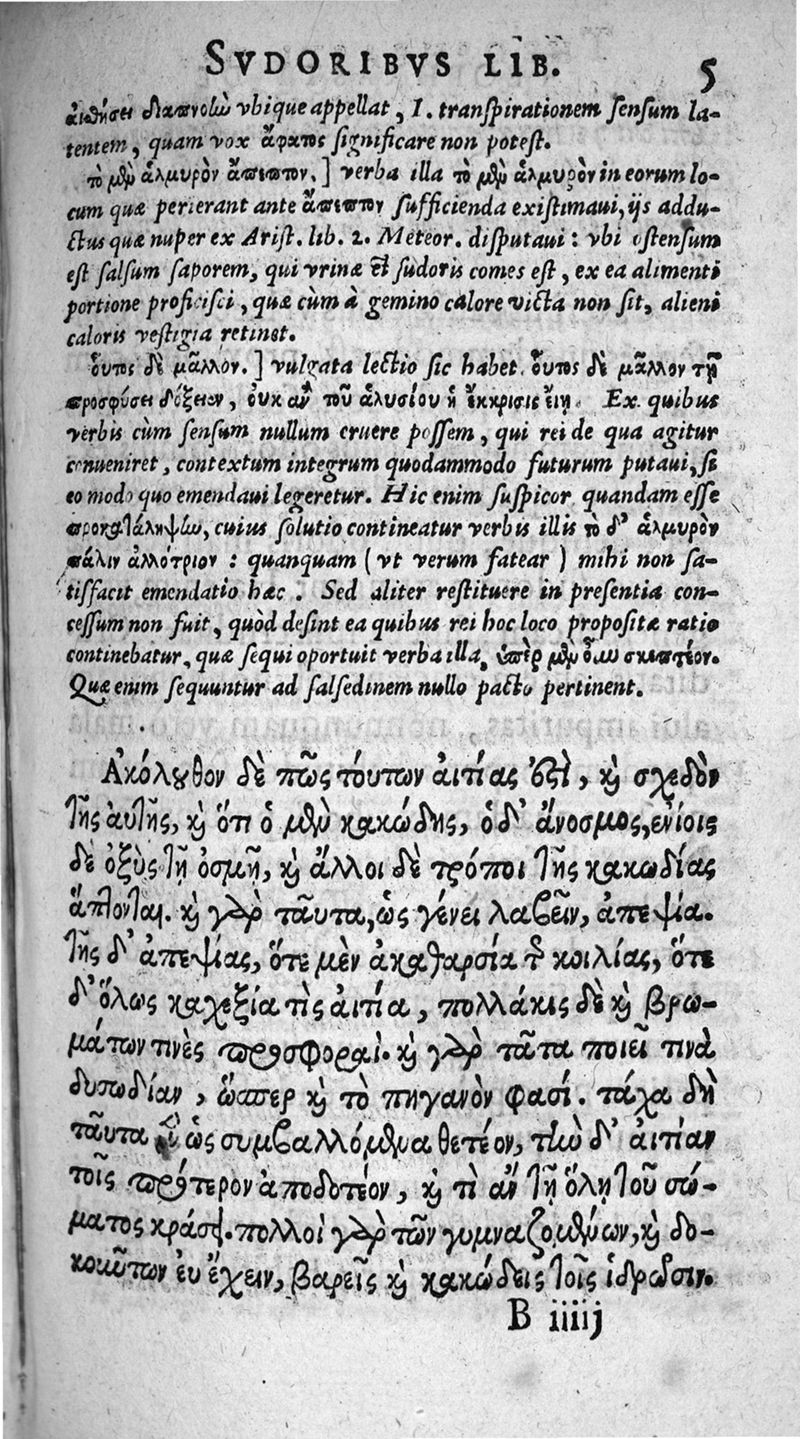 SVDORIBVS LIB. 5
αἰσθήσει διαπνοὴν vbique appellat, I. transpirationem sensum la-
tentem, quam vox ἄφατος significare non potest.
τὸ μὲν ἁλμυρὸν ἄπεπτον.] verba illa τὸ μὲν ἁλμυρὸν in eorum lo-
cum quæ perierant ante ἄπεπτον sufficienda existimaui, ijs addu-
ctus quæ nuper ex Arist. lib. 2. Meteor. disputaui: vbi ostensum
est salsum saporem, qui vrinæ & sudoris comes est, ex ea alimenti
portione proficisci, quæ cùm à gemino calore victa non sit, alieni
caloris vestigia retinet.
οὕτος δὲ μᾶλλον.] vulgata lectio sic habet. οὕτος δὲ μᾶλλον τῇ
προσφύσει δόξειεν, οὐκ ἂν τοῦ ἁλυσίου ἡ ἔκκρισις εἴη. Ex quibus
verbis cùm sensum nullum eruere possem, qui rei de qua agitur
conueniret, contextum integrum quodammodo futurum putaui, si
eo modo quo emendaui legeretur. Hic enim suspicor quandam esse
προκατάληψιν, cuius solutio contineatur verbis illis τὸ δ' ἁλμυρὸν
πάλιν ἀλλότριον: quanquam (vt verum fatear) mihi non sa-
tisfacit emendatio hæc. Sed aliter restituere in presentia con-
cessum non fuit, quòd desint ea quibus rei hoc loco propositæ ratio
continebatur, quæ sequi oportuit verba illa, ὑπὲρ μὲν οὖν σκεπτέον.
Quæ enim sequuntur ad salsedinem nullo pacto pertinent.
Ἀκόλουθον δὲ πῶς τούτων ἀιτίας ἐστὶ, καὶ σχεδὸν
τῆς ἀυτῆς, καὶ ὅτι ὁ μὲν κακώδης, ὁ δ' ἄνοσμος, ἐνίοις
δὲ ὀξὺς τῇ ὀσμῇ, καὶ ἄλλοι δὲ τρόποι τῆς κακωδίας
ἅπτονται. καὶ γὰρ ταῦτα, ὡς γένει λαβεῖν, ἀπεψία.
τῆς δ' ἀπεψίας, ὅτε μὲν ἀκαθαρσία τῆς κοιλίας, ὅτε
δ' ὅλως καχεξία τὶς ἀιτία, πολλάκις δὲ καὶ βρω-
μάτων τινὲς προσφοραί. καὶ γὰρ ταῦτα ποιεῖ τινὰ
δυσωδίαν, ὥσπερ καὶ τὸ πηγανὸν φασί. τάχα δὴ
ταῦτα ὡς συμβαλλόμενα θετέον, τὴν δ' ἀιτίαν
τοῖς πρότερον ἀποδοτέον, καὶ τὶ ἂν τῇ ὅλῃ τοῦ σώ-
ματος κράσει. πολλοὶ γὰρ τῶν γυμναζομένων, καὶ δο-
κούντων ἐυ ἔχειν, βαρεῖς καὶ κακώδεις τοῖς ἱδρῶσιν.
B iiiij